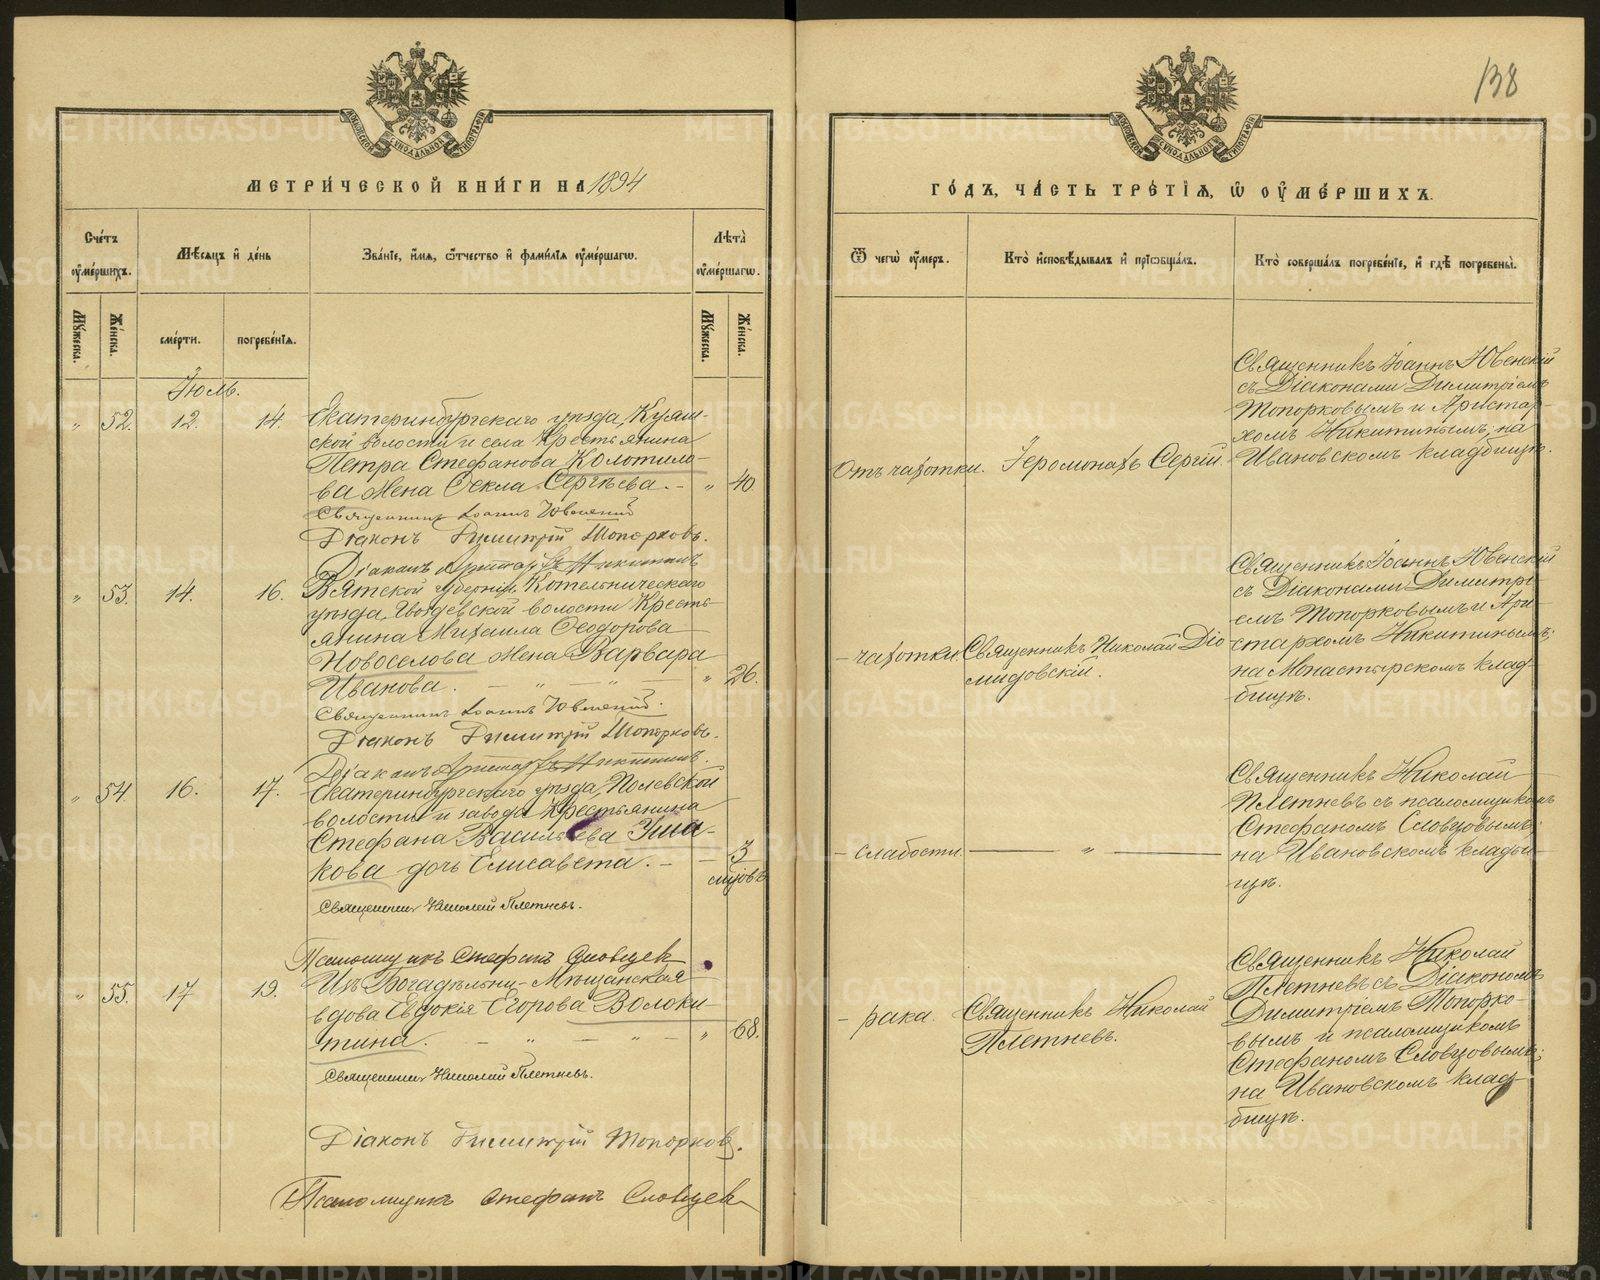 138
МОСКОВСКОЙ СѴНОДАЛЬНОЙ ТИПОГРАФІИ
МОСКОВСКОЙ СѴНОДАЛЬНОЙ ТИПОГРАФІИ
МЕТРИ́ЧЕСКОЙ КНИ́ГИ НА 1894
ГО́ДЪ, ЧА́СТЬ ТРЕ́ТІѦ, Ѡ ОУ҆МЕ́РШИХЪ.
Сче́тъ оу҆ме́ршихъ.
Мѣ́сяцъ и҆ де́нь
Зва́ніе, и҆́мя, ѻ҆́тчество и҆ фами́лія оу҆ме́ршагѡ.
Лѣ́та оу҆ме́ршагѡ.
Ѿ чегѡ̀ оу҆́меръ.
Кто̀ и҆сповѣ́дывалъ и҆ прїѡбща́лъ.
Кто̀ соверша́лъ погребе́ніе, и҆ гдѣ̀ погребены̀.
Мꙋ́жеска.
Же́нска.
сме́рти.
погребе́нія.
Мꙋ́жеска.
Же́нска.
Іюль.
„ 52. 12. 14.
Екатеринбургскаго уѣзда, Куяш-
ской волости и села Крестьянина
Петра Стефанова Колотило-
ва жена Ѳекла Сергѣева. – „ 40
Священникъ Іоаннъ Ювенскій
Діаконъ Димитрій Топорковъ.
Діаконъ Аристархъ Никитинъ
Отъ чахотки.
Іеромонахъ Сергій.
Священникъ Іоаннъ Ювенскій
съ Діаконами Димитріемъ
Топорковымъ и Аристар-
хомъ Никитинымъ; на
Ивановскомъ кладбищѣ.
„ 53. 14. 16.
Вятской губерніи, Котельническаго
уѣзда, Гвоздевской волости Кресть-
янина Михаила Ѳеодорова
Новоселова жена Варвара
Иванова. – „ – „ – „ 26.
Священникъ Іоаннъ Ювенскій.
Діаконъ Димитрій Топорковъ.
Діаконъ Аристархъ Никитинъ.
– чахотки
Священникъ Николай Діо-
мидовскій.
Священникъ Іоаннъ Ювенскій
съ Діаконами Димитрі-
емъ Топорковымъ и Ари-
стархомъ Никитинымъ;
на Монастырскомъ клад-
бищѣ.
„ 54. 16. 17.
Екатеринбургскаго уѣзда, Полевской
волости и завода Крестьянина
Стефана Васильева Уша-
кова дочь Елисавета. – – 3
Священникъ Николай Плетневъ.
Псаломщикъ Стефанъ Словцев
– слабости. – „ –
Священникъ Николай
Плетневъ съ псаломщикомъ
Стефаномъ Словцовымъ;
на Ивановскомъ кладби-
щѣ.
„ 55. 17 19.
Изъ Богадѣльни – Мѣщанская
вдова Евдокія Егорова Волоки-
тина. – „ – „ – „ 68.
Священникъ Николай Плетневъ.
Діаконъ Димитрій Топорковъ.
Псаломщикъ Стефанъ Словцев
– рака.
Священникъ Николай
Плетневъ.
Священникъ Николай
Плетневъ съ Діакономъ
Димитріемъ Топорко-
вымъ и псаломщикомъ
Стефаномъ Словцовымъ;
на Ивановскомъ клад-
бищѣ.
METRIKI.GASO-URAL.RU